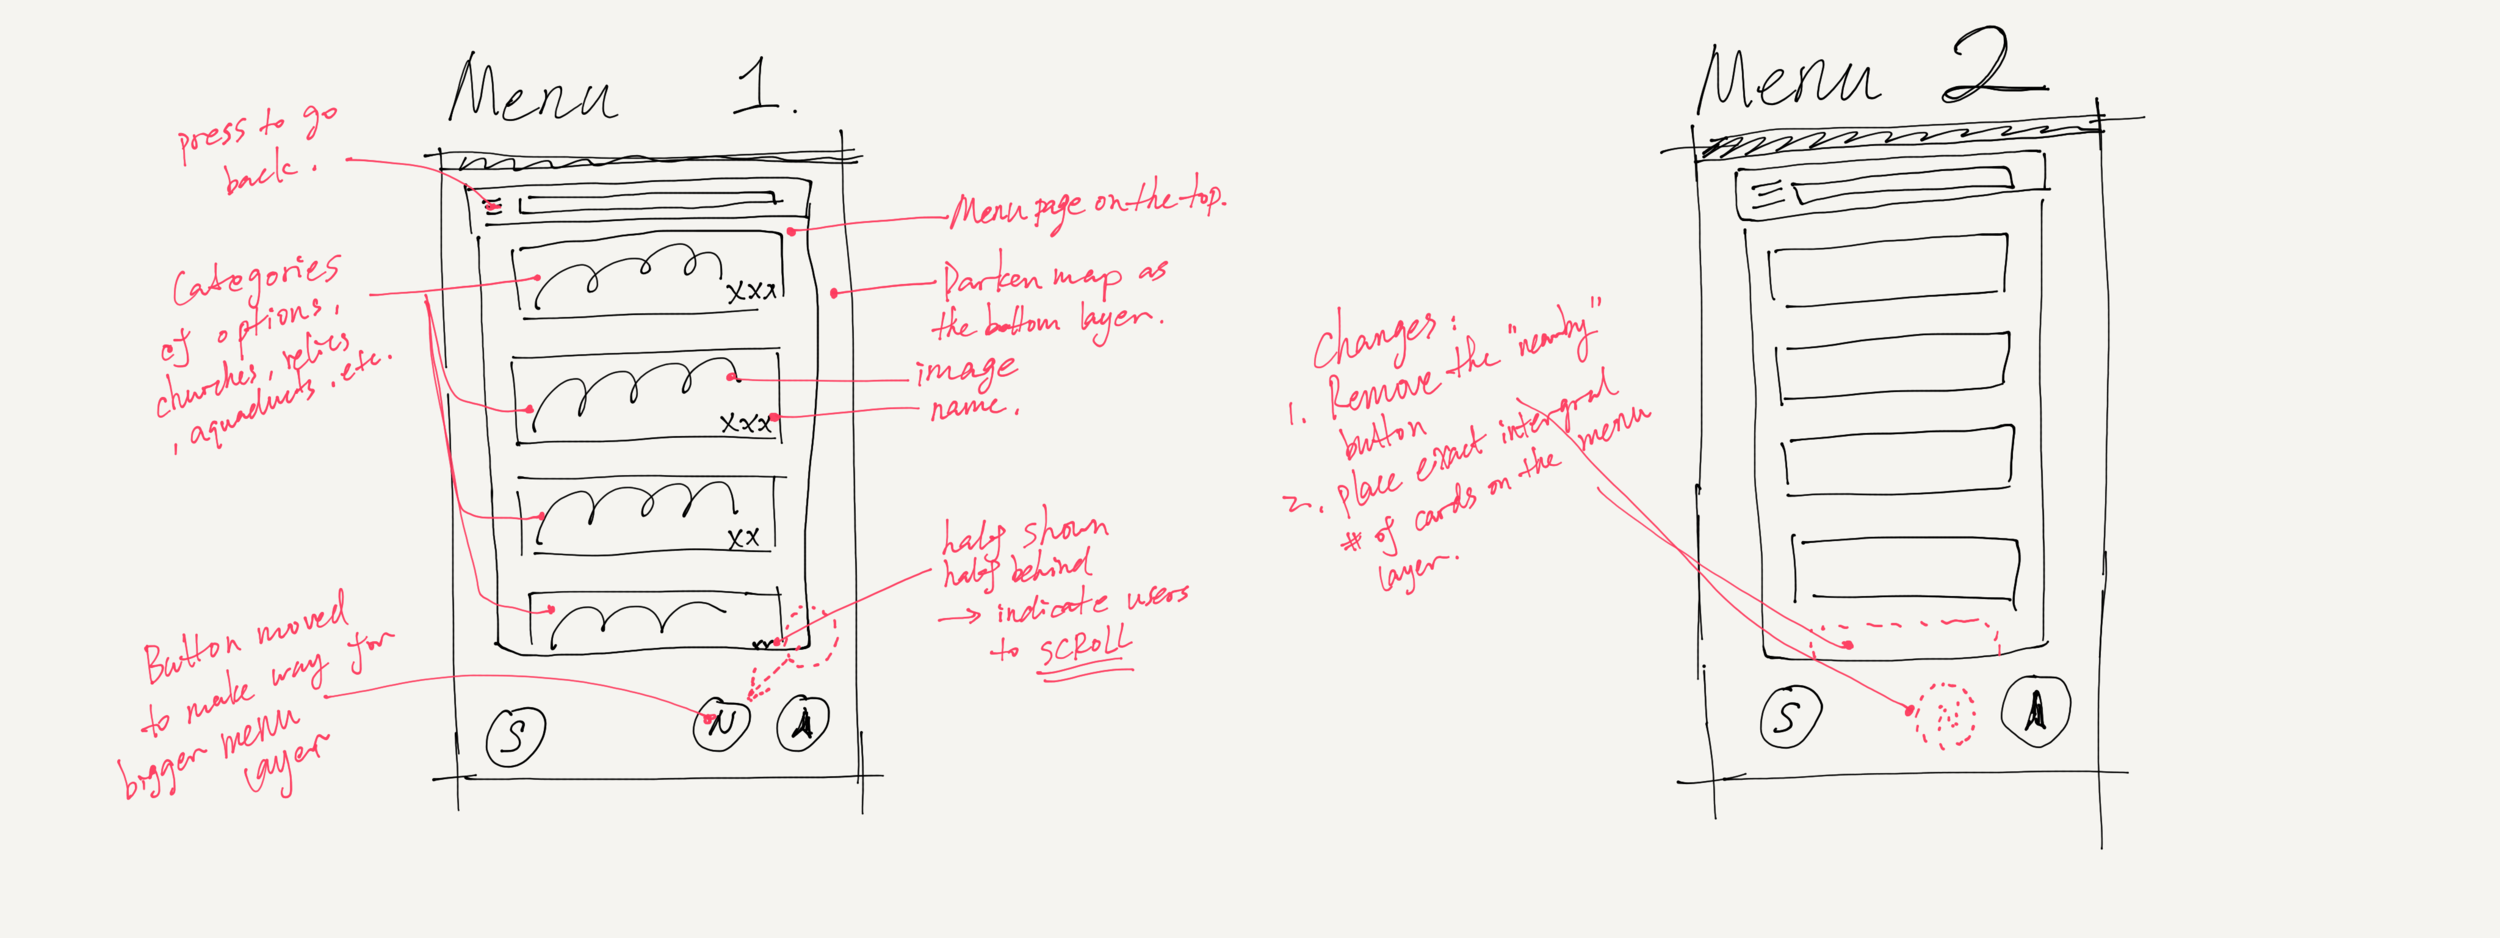 Menu 1.
press to go
back.
Categories
of options,
churches, relics
, aquaducts. etc.
Button moved
to make way for
bigger menu
layer
xxx
xxx
xx
S
N
A
Menu page on the top.
Darken map as
the bottom layer.
image
name.
half shown
half behind
→ indicate users
to SCROLL
Changes:
1. Remove the "nearby"
button
2. Place exact intergral
# of cards on the menu
layer.
Menu 2
S
N
A